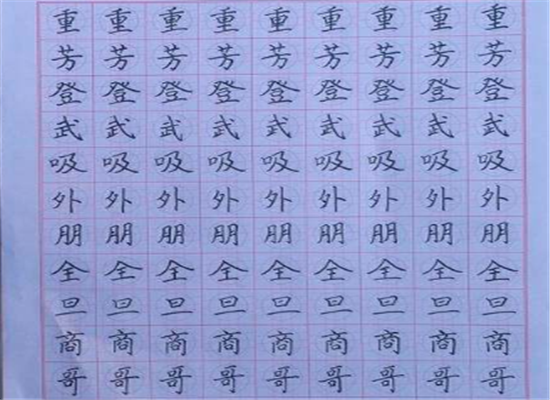 重重重重重重重重重
芳芳芳芳芳芳芳芳芳
登登登登登登登登登
武武武武武武武武武
吸吸吸吸吸吸吸吸吸
外外外外外外外外外
朋朋朋朋朋朋朋朋朋
全全全全全全全全全
旦旦旦旦旦旦旦旦旦
商商商商商商商商商
哥哥哥哥哥哥哥哥哥